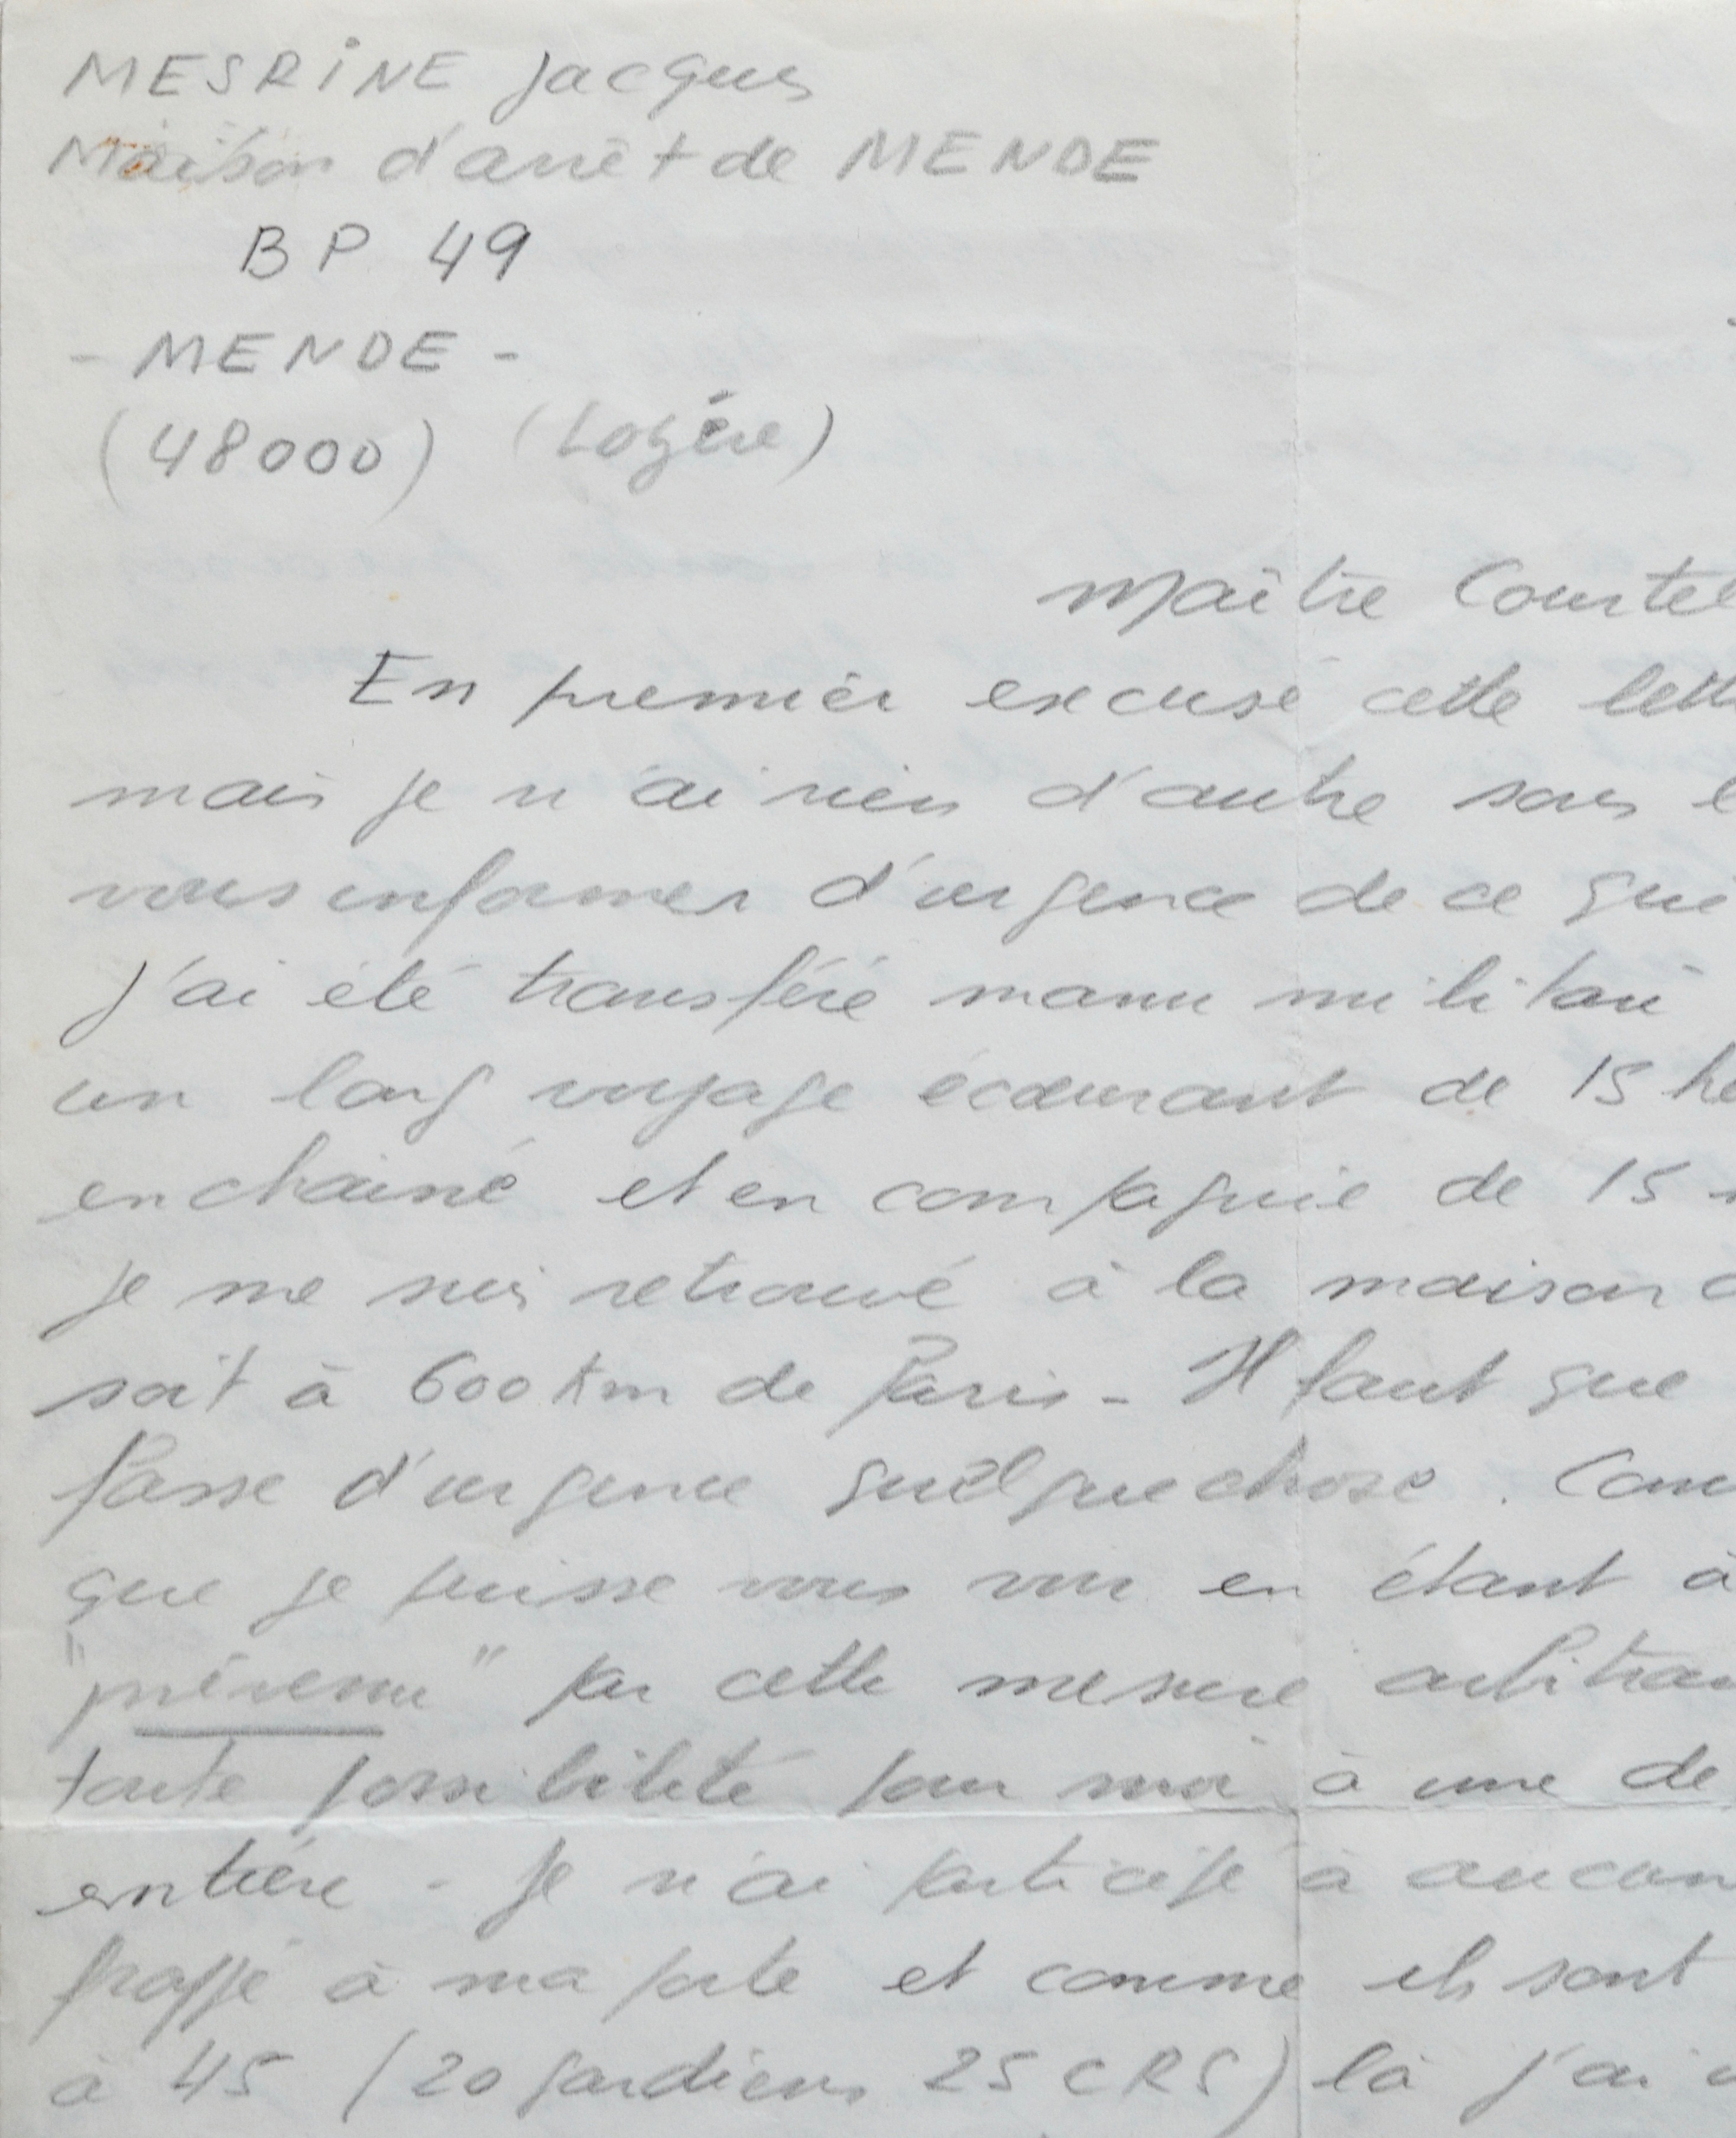 MESRINE Jacques
Maison d'arrêt de MENDE
BP 49
- MENDE -
(48000) (Lozére)
Maître Courtel
En premier excusé cette lett
mais je n'ai rien d'autre sous l
vous informer d'urgence de ce que
j'ai été transféré manu militari
un long voyage écœurant de 15 he
enchainé et en compagnie de 15
je me suis retrouvé à la maison d
soit à 600 km de Paris - Il faut que
fasse d'urgence quelque chose . Com
que je puisse vous voir en étant à
"prévenu" par cette mesure arbitrai
toute possibilité pour moi à une dé
entière - Je n'ai participé à aucun
frappé à ma porte et comme ils sont
à 45 (20 gardiens 25 CRS) là j'ai